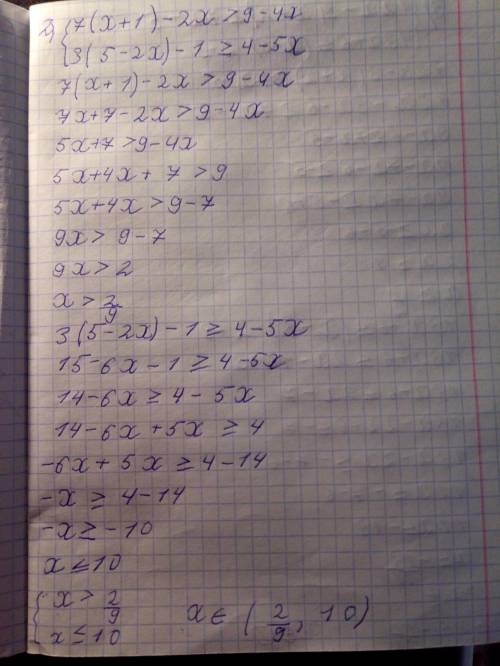 2) { 7(x+1)-2x>9-4x
3(5-2x)-1≥4-5x
7(x+1)-2x>9-4x
7x+7-2x>9-4x
5x+7>9-4x
5x+4x+7>9
5x+4x>9-7
9x>9-7
9x>2
x>2/9
3(5-2x)-1≥4-5x
15-6x-1≥4-5x
14-6x≥4-5x
14-6x+5x≥4
-6x+5x≥4-14
-x≥4-14
-x≥-10
x≤10
{ x>2/9
x≤10 x∈(2/9, 10)